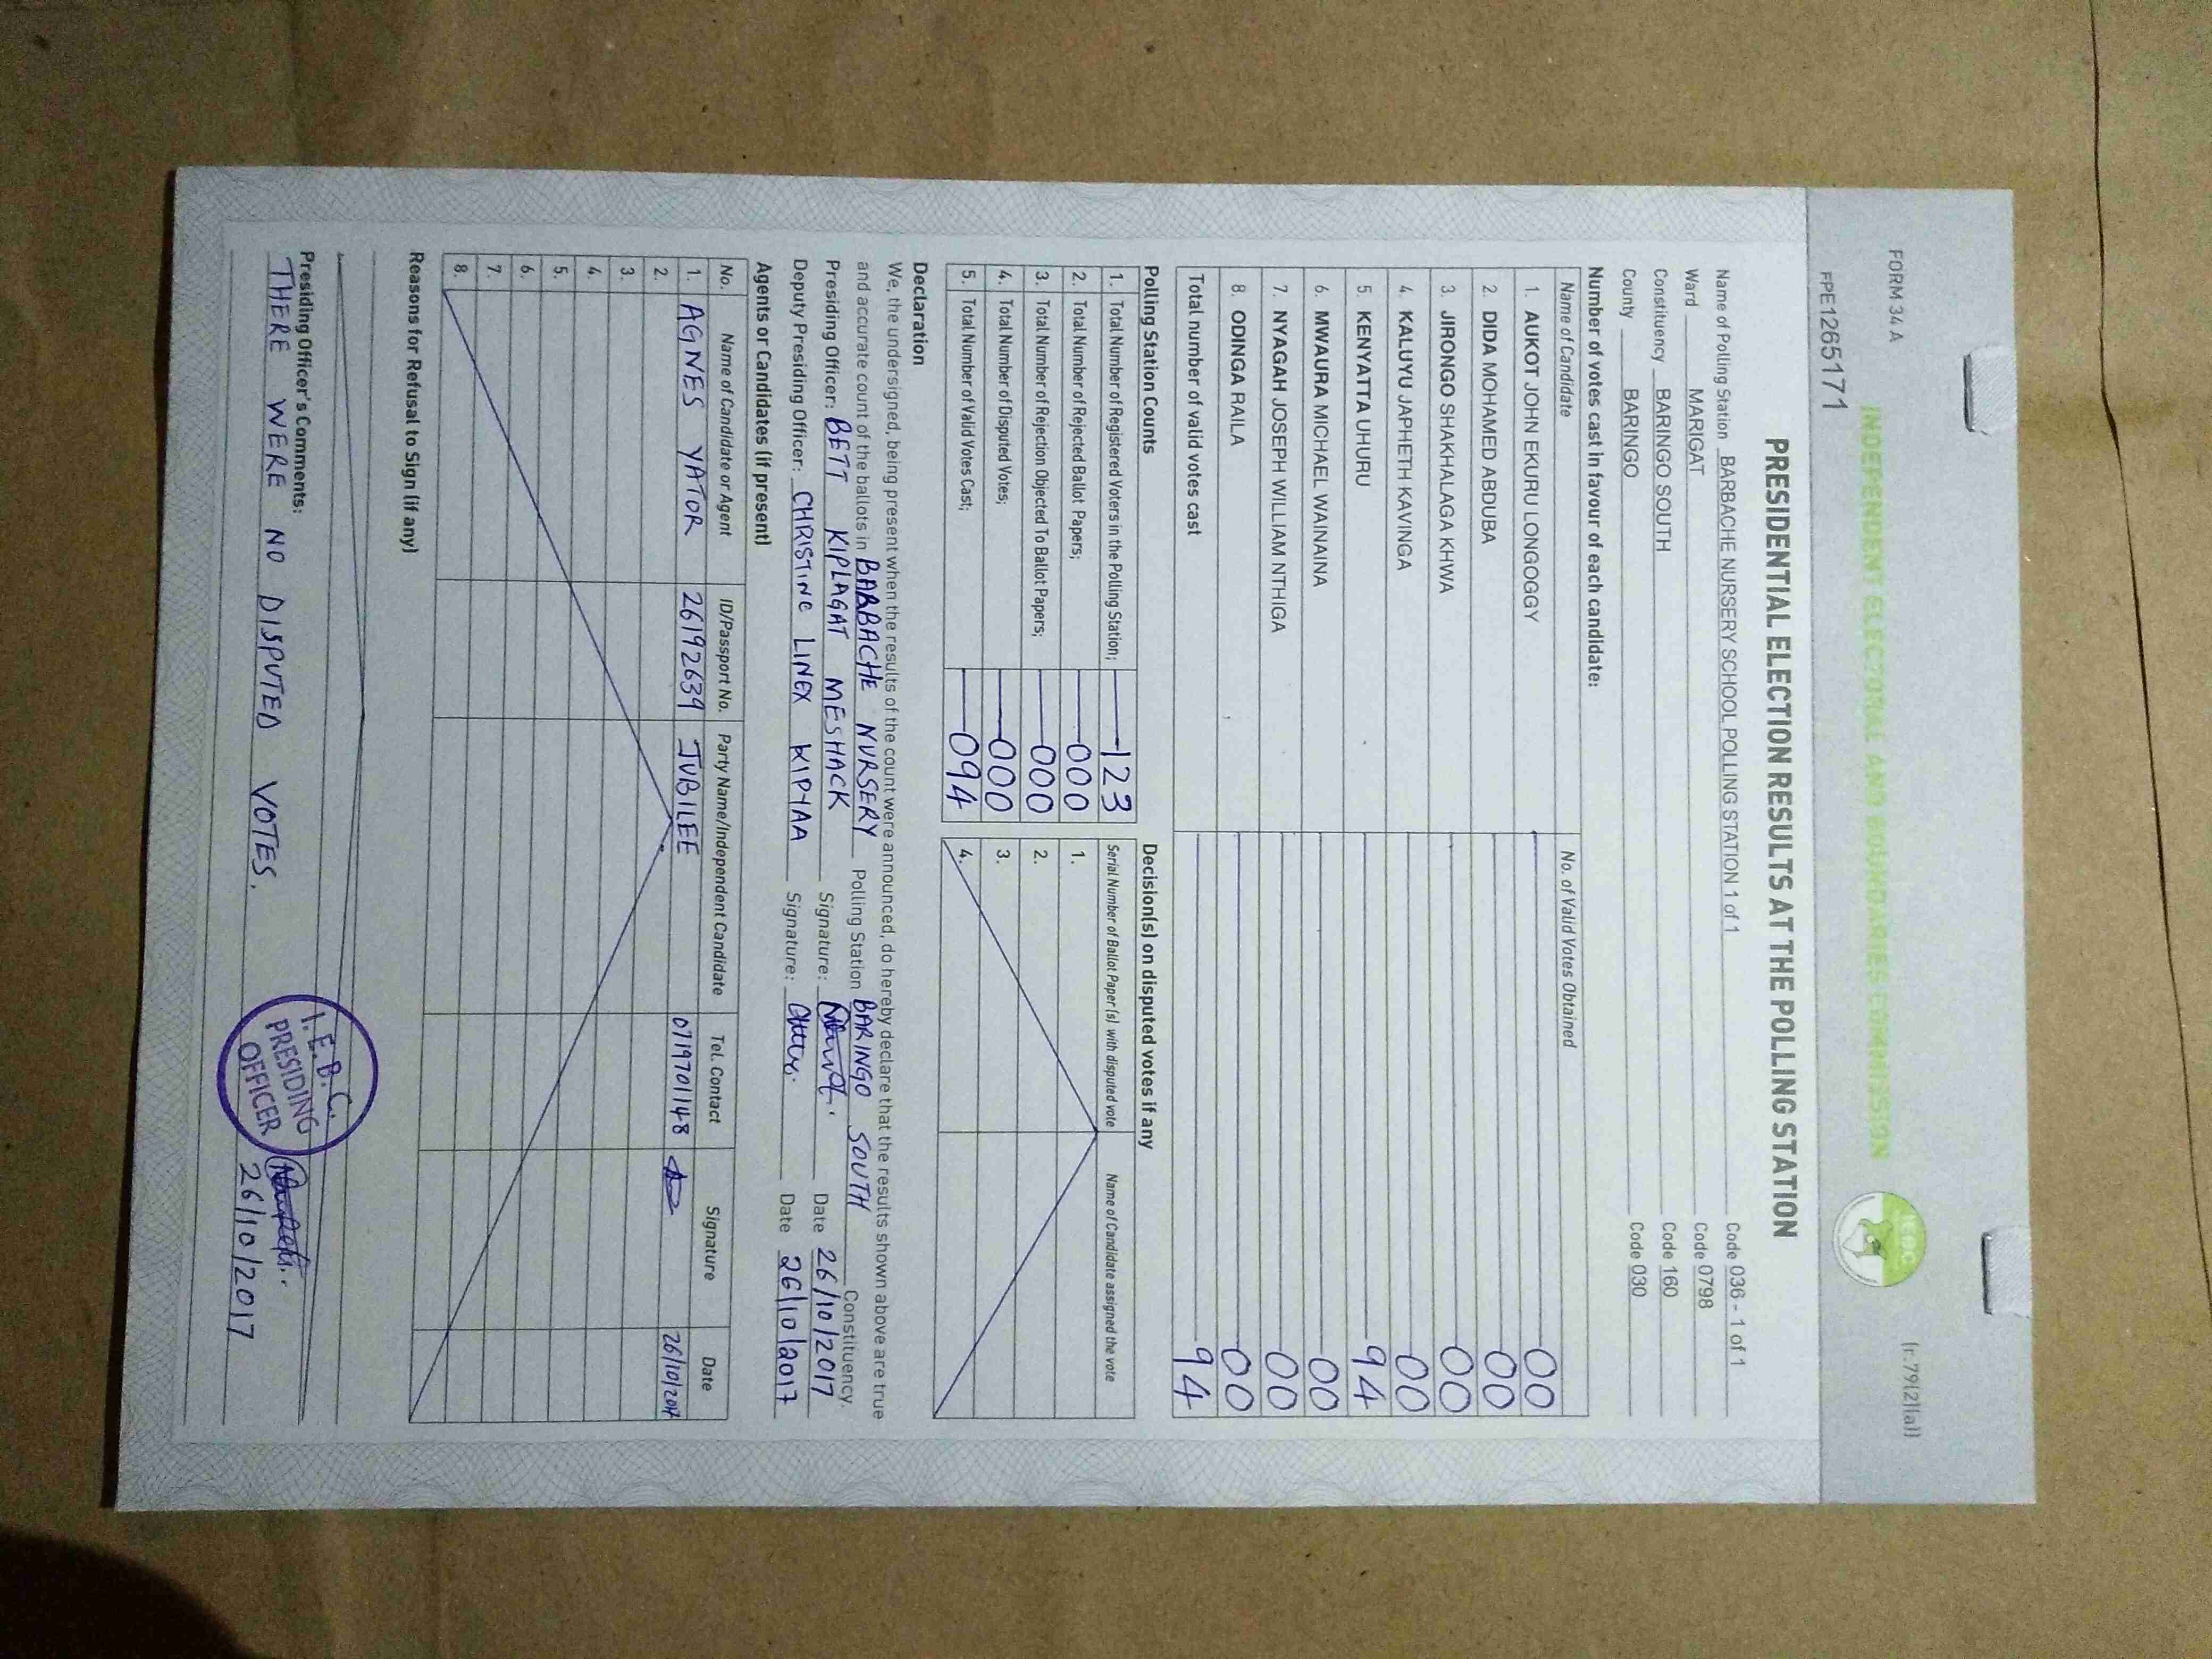 FORM 34 A
(r.79(2)(a))
INDEPENDENT ELECTORAL AND BOUNDARIES COMMISSION
IEBC
FPE126517 1
PRESIDENTIAL ELECTION RESULTS AT THE POLLING STATION
Name of Polling Station BARBACHE NURSERY SCHOOL POLLING STATION 1 of 1 Code 036 - 1 of 1
Ward MARIGAT Code 0798
Constituency BARINGO SOUTH Code 160
County BARINGO Code 030
Number of votes cast in favour of each candidate:
Name of Candidate No. of Valid Votes Obtained
1. AUKOT JOHN EKURU LONGOGGY 00
2. DIDA MOHAMED ABDUBA 00
3. JIRONGO SHAKHALAGA KHWA 00
4. KALUYU JAPHETH KAVINGA 00
5. KENYATTA UHURU 94
6. MWAURA MICHAEL WAINAINA 00
7. NYAGAH JOSEPH WILLIAM NTHIGA 00
8. ODINGA RAILA 00
Total number of valid votes cast 94
Polling Station Counts
1. Total Number of Registered Voters in the Polling Station; 123
2. Total Number of Rejected Ballot Papers; 000
3. Total Number of Rejection Objected To Ballot Papers; 000
4. Total Number of Disputed Votes; 000
5. Total Number of Valid Votes Cast; 094
Decision(s) on disputed votes if any
Serial Number of Ballot Paper(s) with disputed vote Name of Candidate assigned the vote
1.
2.
3.
4.
Declaration
We, the undersigned, being present when the results of the count were announced, do hereby declare that the results shown above are true
and accurate count of the ballots in BARBACHE NURSERY Polling Station BARINGO SOUTH Constituency.
Presiding Officer: BETT KIPLAGAT MESHACK Signature: Date 26/10/2017
Deputy Presiding Officer: CHRISTINE LINEX KIPYAA Signature: Date 26/10/2017
Agents or Candidates (if present)
No. Name of Candidate or Agent ID/Passport No. Party Name/Independent Candidate Tel. Contact Signature Date
1. AGNES YATOR 26192639 JUBILEE 0719701148 26/10/2017
2.
3.
4.
5.
6.
7.
8.
Reasons for Refusal to Sign (if any)
Presiding Officer's Comments:
THERE WERE NO DISPUTED VOTES.
I.E.B.C.
PRESIDING
OFFICER
26/10/2017